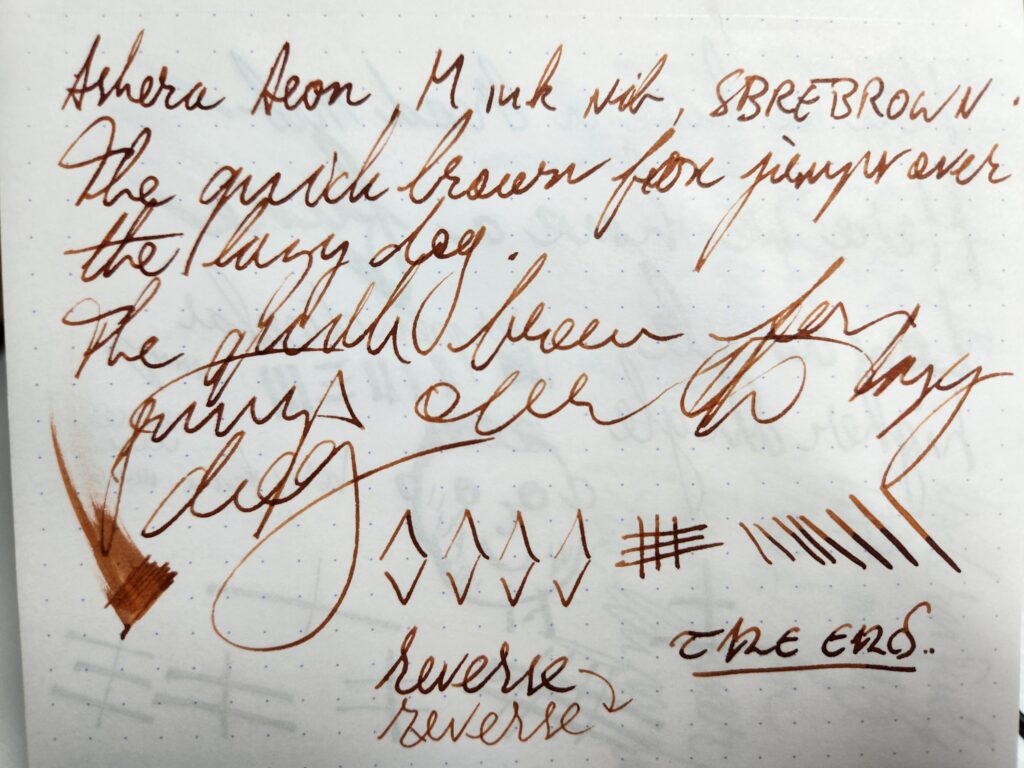 Ashera Aeon, M ink nib, SBREBROWN.
The quick brown fox jumps over
the lazy dog.
The quick brown fox
jumps over the lazy
dog
reverse
reverse
THE END..